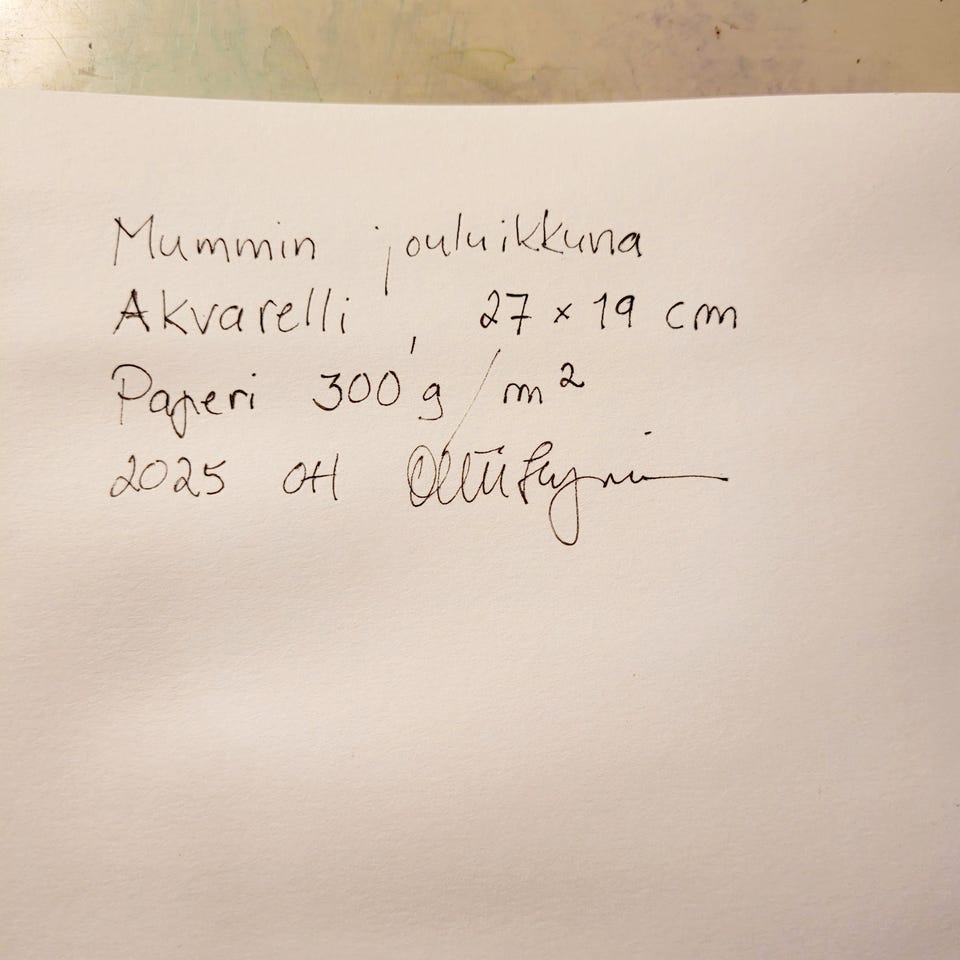 Mummin jouluikkuna
Akvarelli, 27 x 19 cm
Paperi 300 g/m²
2025 OH